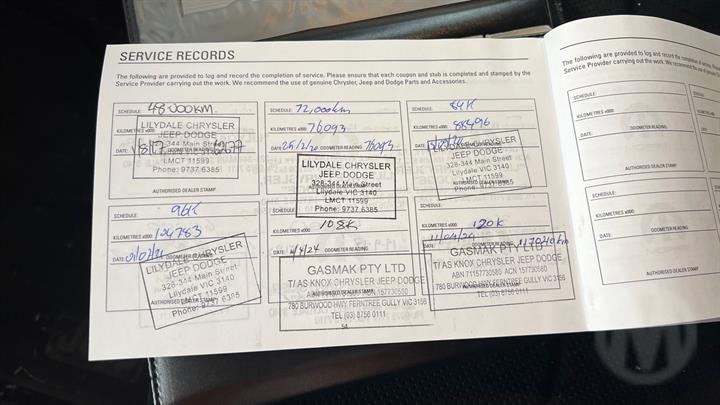 SERVICE RECORDS
The following are provided to log and record the completion of service. Please ensure that each coupon and stub is completed and stamped by the
Service Provider carrying out the work. We recommend the use of genuine Chrysler, Jeep and Dodge Parts and Accessories.
SCHEDULE: 48000km
KILOMETRES x000:
DATE: ODOMETER READING:
LILYDALE CHRYSLER
JEEP DODGE
328-344 Main Street
LMCT 11599
Phone: 9737 6385
AUTHORISED DEALER STAMP
SCHEDULE: 72,000km
KILOMETRES x000: 76093
DATE: 25/2/20 ODOMETER READING: 76093
LILYDALE CHRYSLER
JEEP DODGE
328-344 Main Street
Lilydale VIC 3140
LMCT 11599
Phone: 9737 6385
SCHEDULE: 84K
KILOMETRES x000: 88496
DATE: ODOMETER READING:
LILYDALE CHRYSLER
JEEP DODGE
328-344 Main Street
Lilydale VIC 3140
LMCT 11599
Phone: 9737 6385
AUTHORISED DEALER STAMP
SCHEDULE: 96K
KILOMETRES x000: 104783
DATE: ODOMETER READING:
LILYDALE CHRYSLER
JEEP DODGE
328-344 Main Street
Lilydale VIC 3140
LMCT 11599
Phone: 9737 6385
AUTHORISED DEALER STAMP
SCHEDULE:
KILOMETRES x000: 108K
DATE: ODOMETER READING:
GASMAK PTY LTD
T/AS KNOX CHRYSLER JEEP DODGE
780 BURWOOD HWY FERNTREE GULLY VIC 3156
TEL (03) 8756 0111
SCHEDULE:
KILOMETRES x000: 120K
DATE: 11/04/24 ODOMETER READING: 117040km
GASMAK PTY LTD
T/AS KNOX CHRYSLER JEEP DODGE
ABN 71157730580 ACN 157730580
780 BURWOOD HWY FERNTREE GULLY VIC 3156
TEL (03) 8756 0111
AUTHORISED DEALER STAMP
54
The following are provided to log and record
Service Provider carrying out the work. We recommend the use of
SCHEDULE:
KILOMETRES x000:
DATE: ODOMETER READING:
AUTHORISED DEALER STAMP
SCHEDULE:
KILOMETRES x000:
DATE: ODOMETER READING:
AUTHORISED DEALER STAMP